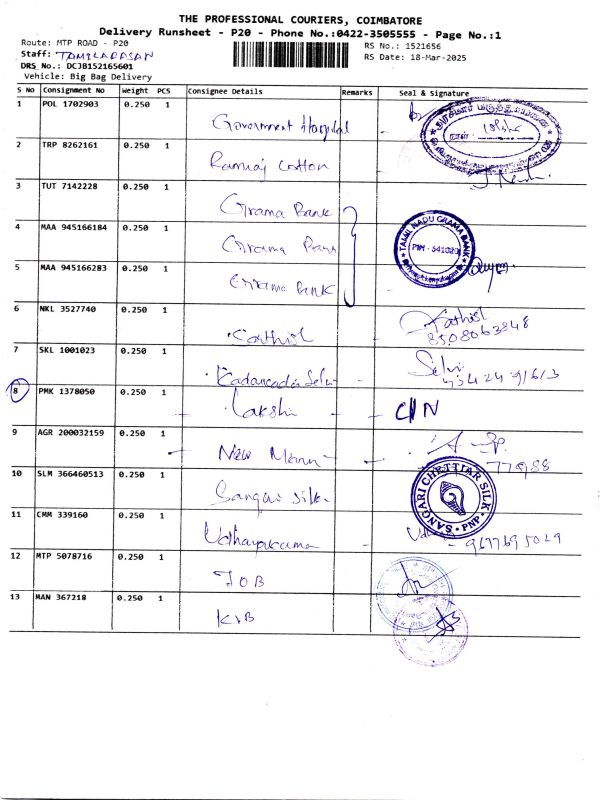 THE PROFESSIONAL COURIERS, COIMBATORE
Delivery Runsheet - P20 - Phone No.:0422-3505555 - Page No.:1
Route: MTP ROAD - P20
RS No.: 1521656
Staff: TAMILARASAN
RS Date: 18-Mar-2025
DRS No.: DCJB152165601
Vehicle: Big Bag Delivery
S No Consignment No Weight PCS Consignee Details Remarks Seal & signature
1 POL 1702903 0.250 1
Government Hospital
2 TRP 8262161 0.250 1
Ramraj Cotton
3 TUT 7142228 0.250 1
Grama Bank
4 MAA 945166184 0.250 1
Grama Bank
TAMIL NADU GRAMA BANK
PNM - 641020
5 MAA 945166283 0.250 1
Grama Bank
6 NKL 3527740 0.250 1
Kathish
8508063848
7 SKL 1001023 0.250 1
Selvi
8 PMK 1378050 0.250 1
Lakshi - C/N
9 AGR 200032159 0.250 1
New Mann
10 SLM 366460513 0.250 1
Sangari Silk
SANGARI CHETTIAR SILK
PNP
11 CMM 339160 0.250 1
Uthayakumar
- 9677695029
12 MTP 5078716 0.250 1
IOB
13 MAN 367218 0.250 1
KVB